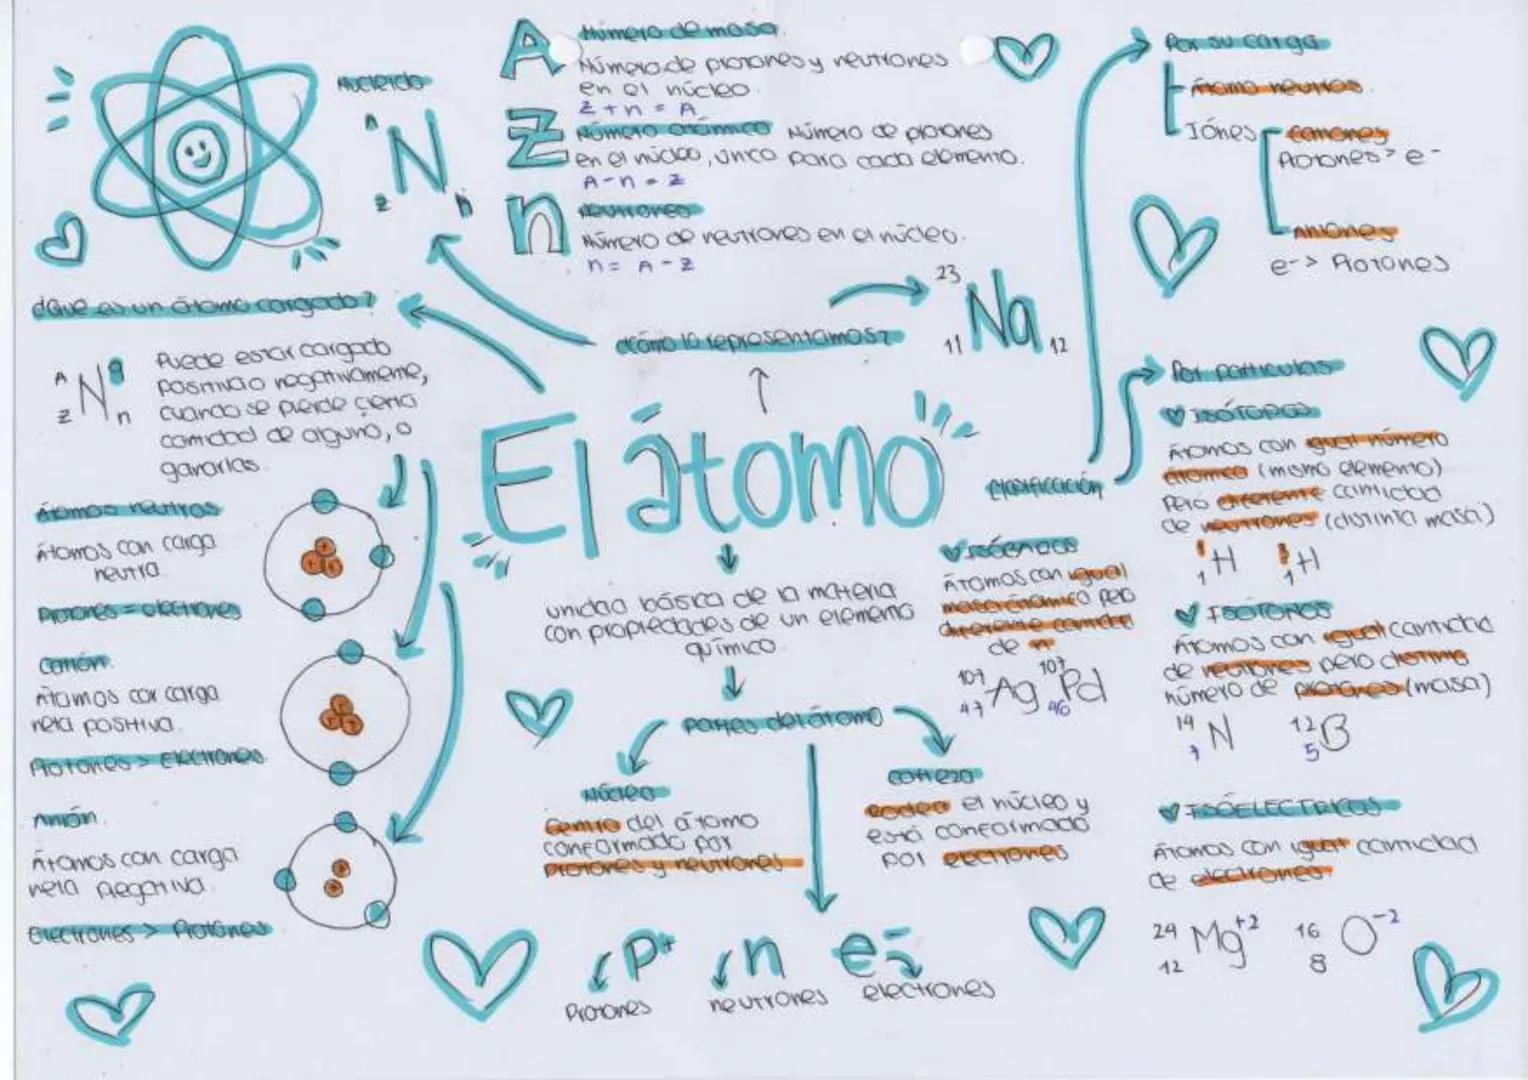 Nucleido
A
N
Z
n
A
Número de masa.
Número de protones y neutrones
en el núcleo.
Z + n = A
Z
Número atómico Número de protones
en el núcleo, único para cada elemento.
A - n = Z
n
Neutrones
Número de neutrones en el núcleo.
n = A - Z
¿Cómo lo representamos?
23
Na
11
12
¿Qué es un átomo cargado?
A
N
q
Z
n
Puede estar cargado
positiva o negativamente,
cuando se pierde cierta
cantidad de alguno, o
ganarlas.
Átomos neutros
Átomos con carga
neutra.
Protones = electrones
Catión.
Átomos con carga
neta positiva.
Protones > Electrones.
Anión.
Átomos con carga
neta negativa.
Electrones > Protones
El átomo
unidad básica de la materia
con propiedades de un elemento
químico.
Partes del átomo
Núcleo
Centro del átomo
conformado por
protones y neutrones
Corteza
rodea el núcleo y
está conformado
por electrones
p+
n
e-
Protones
neutrones
electrones
Clasificación
Por su carga
Átomo neutros.
Iónes
Cationes
Protones > e-
Aniones
e- > Protones
Por partículas
ISÓTOPOS
Átomos con igual número
átomico (mismo elemento)
pero diferente cantidad
de neutrones (distinta masa)
1
H
1
3
H
1
ISÓTONOS
Átomos con igual cantidad
de neutrones pero distinto
número de protones (masa)
14
N
7
12
B
5
ISÓELECTRICOS
Átomos con igual cantidad
de electrones.
24
Mg+2
12
16
O-2
8
Átomos con igual
diferente cantidad
de n
107
Ag
47
107
Pd
46